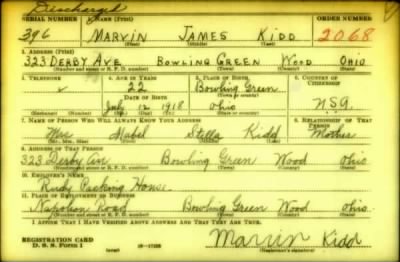 Discharged
SERIAL NUMBER 1. NAME (Print) ORDER NUMBER
396 MARVIN JAMES KIDD 2068
(First) (Middle) (Last)
2. ADDRESS (Print)
323 DERBY AVE BOWLING GREEN WOOD OHIO
(Number and street or R. F. D. number) (Town) (County) (State)
3. TELEPHONE 4. AGE IN YEARS 5. PLACE OF BIRTH 6. COUNTRY OF CITIZENSHIP
22 Bowling Green
DATE OF BIRTH (Town or county)
July 12 1918 Ohio
7. NAME OF PERSON WHO WILL ALWAYS KNOW YOUR ADDRESS 8. RELATIONSHIP OF THAT PERSON
Mrs Mabel Stella Kidd Mother
(Mr., Mrs., Miss) (First) (Middle) (Last)
9. ADDRESS OF THAT PERSON
323 Derby Av Bowling Green Wood Ohio
(Number and street or R. F. D. number) (Town) (County) (State)
10. EMPLOYER'S NAME
Packing House
11. PLACE OF EMPLOYMENT OR BUSINESS
Napoleon Road Bowling Green Wood Ohio
(Number and street or R. F. D. number) (Town) (County) (State)
I AFFIRM THAT I HAVE VERIFIED ABOVE ANSWERS AND THAT THEY ARE TRUE.
REGISTRATION CARD
D. S. S. Form 1
Marvin Kidd
(Registrant's signature)